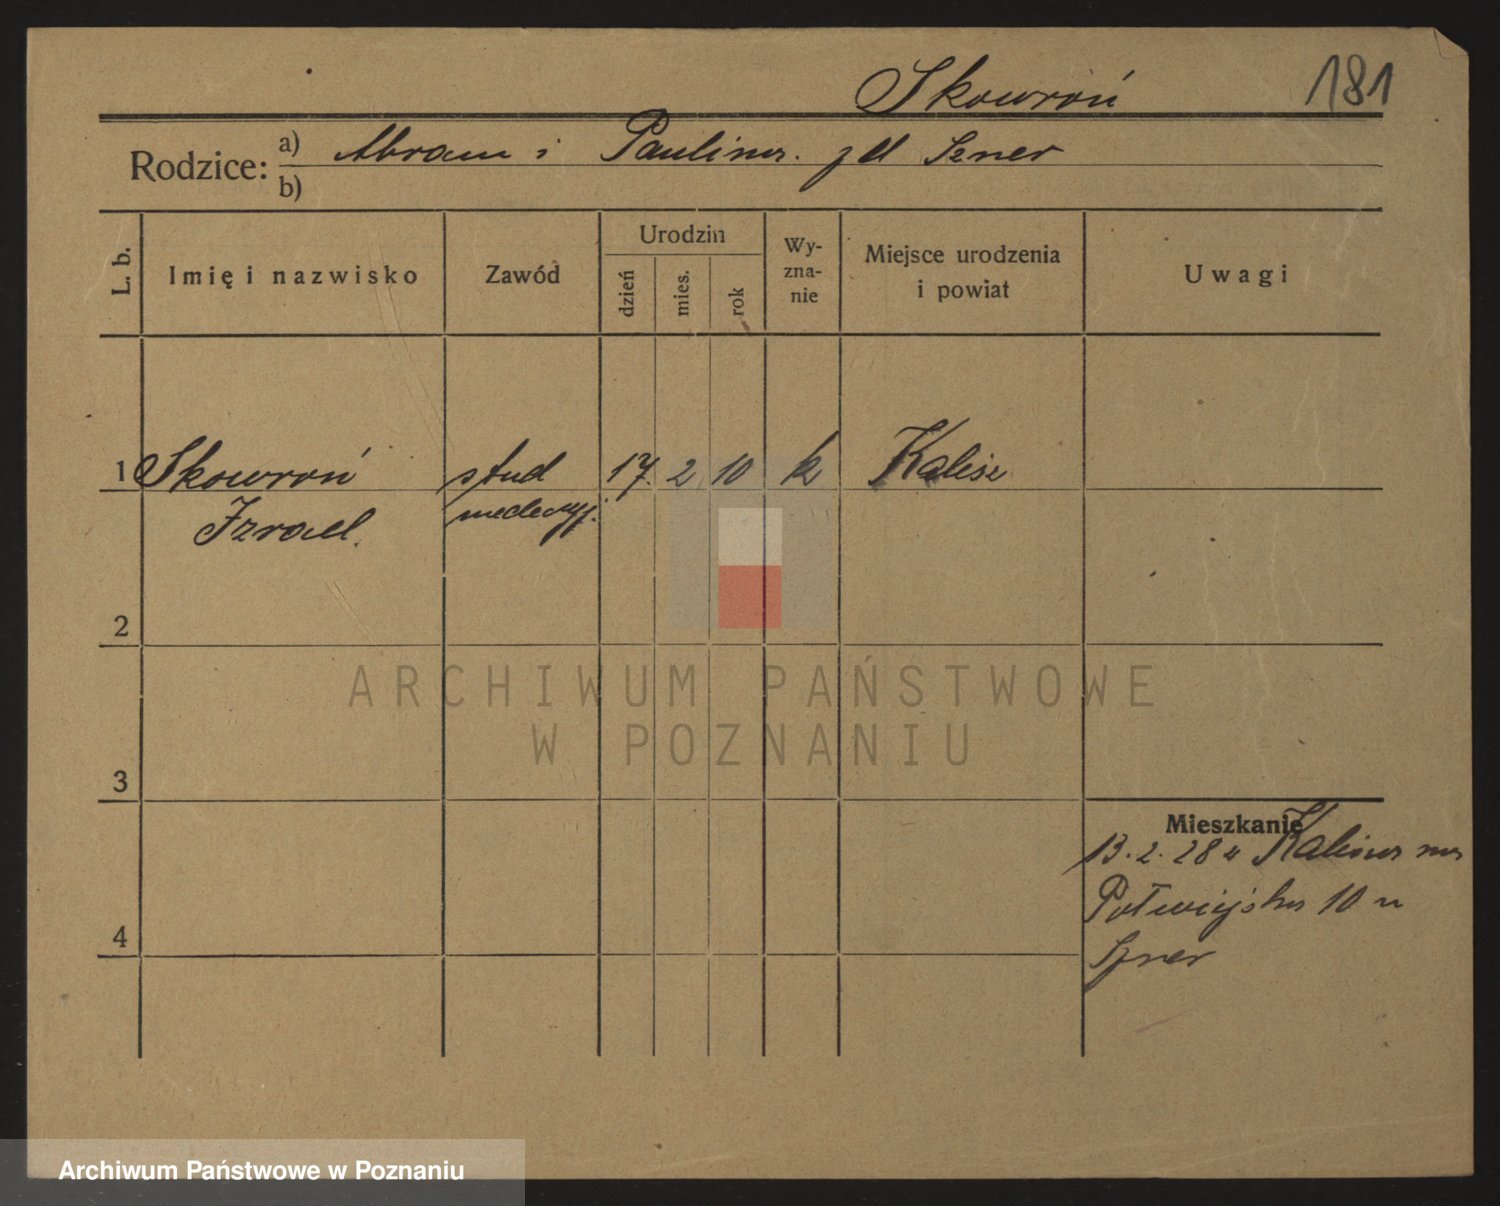 Skowroń 181
Rodzice: a) Abram i Paulina. z d Szner
b)
L. b. Imię i nazwisko Zawód Urodzin dzień mies. rok Wy-zna-nie Miejsce urodzenia i powiat Uwagi
1 Skowroń stud 17. 2 10 k Kalisz
Izrael.
2
ARCHIWUM PAŃSTWOWE
W POZNANIU
3
Mieszkanie
13. 2. 28 Kalisza na
Półwiejska 10 u
4
Szner
Archiwum Państwowe w Poznaniu